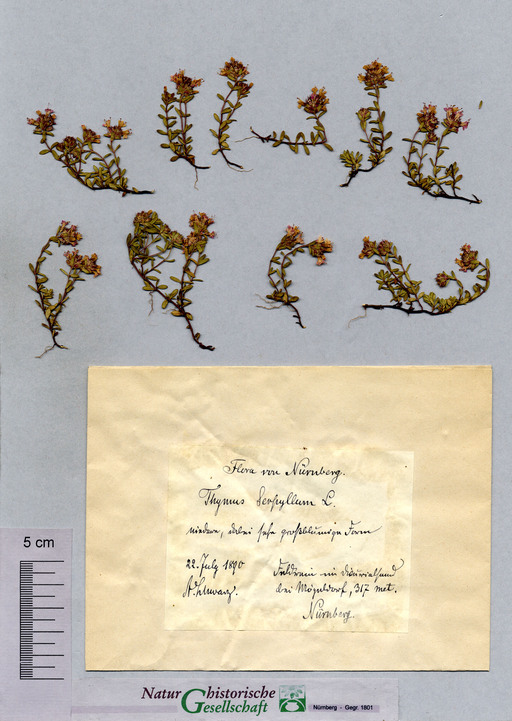 Flora von Nürnberg.
Thymus Serpyllum L.
niedere, dabei sehr großblumige Form
22. July 1890
A. Schwarz.
Feldrain im Diluvialsand
bei Mögeldorf, 317 met.
Nürnberg.
5 cm
Naturhistorische
Gesellschaft
Nürnberg - Gegr. 1801